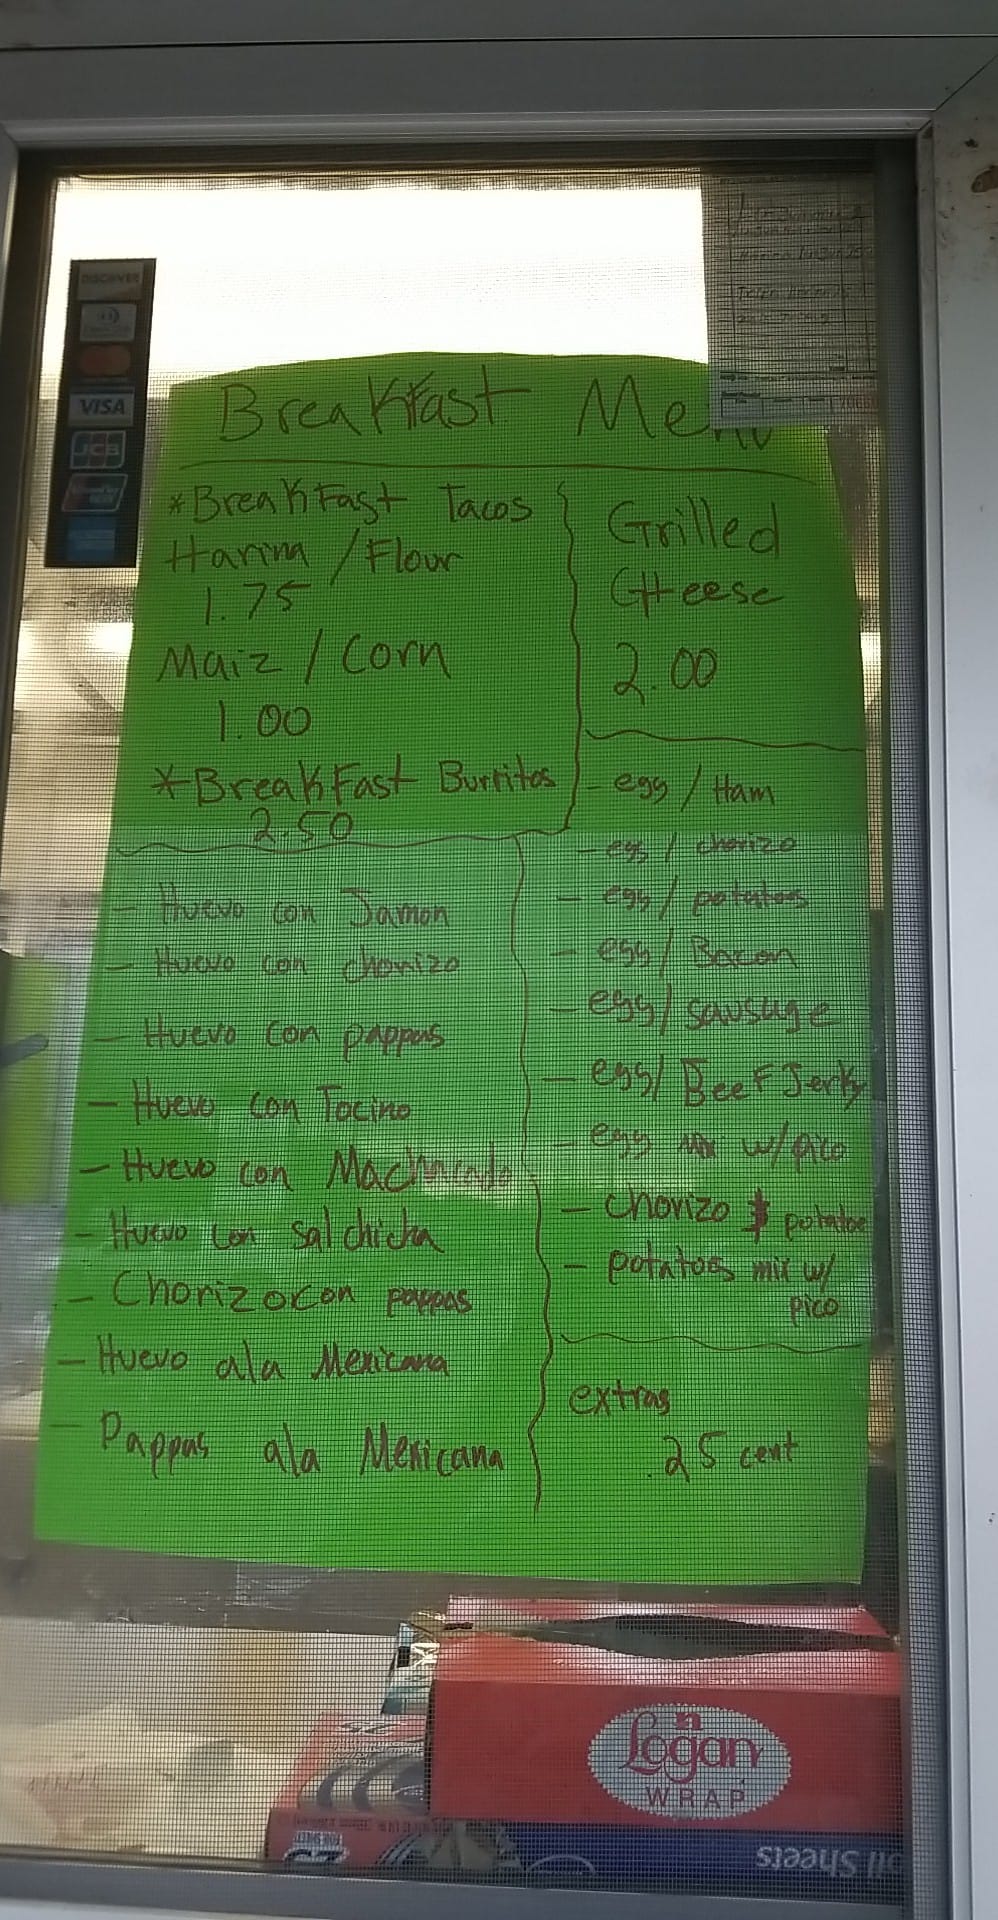 DISCOVER
VISA
JCB
Breakfast Menu
*Breakfast Tacos
Harina / Flour
1.75
Maiz / Corn
1.00
*Breakfast Burritos
2.50
Grilled
Cheese
2.00
- Huevo con Jamon
- Huevo con chorizo
- Huevo con pappas
- Huevo con Tocino
- Huevo con Machacado
- Huevo con salchicha
- Chorizo con pappas
- Huevo ala Mexicana
- Pappas ala Mexicana
- egg / Ham
- egg / chorizo
- egg / potatoes
- egg / Bacon
- egg / sausuge
- egg / Beef Jerky
- egg mix w/ pico
- chorizo $ potatoe
- potatoes mix w/
pico
extras
.25 cent
Logan
WRAP
Sheets